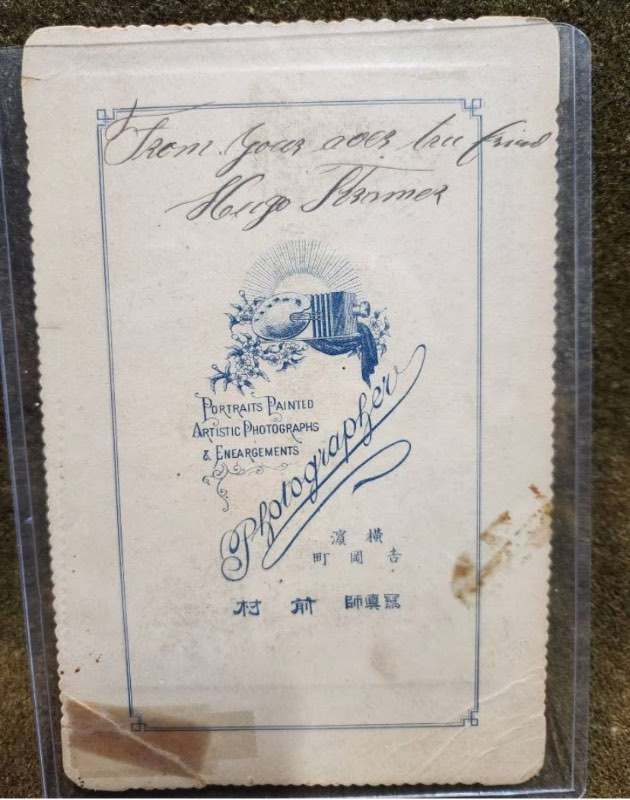 From your tru
Hugo
PORTRAITS PAINTED
ARTISTIC PHOTOGRAPHS
& ENEARGEMENTS
Photographer
橫濱
吉岡町
寫眞師 前村